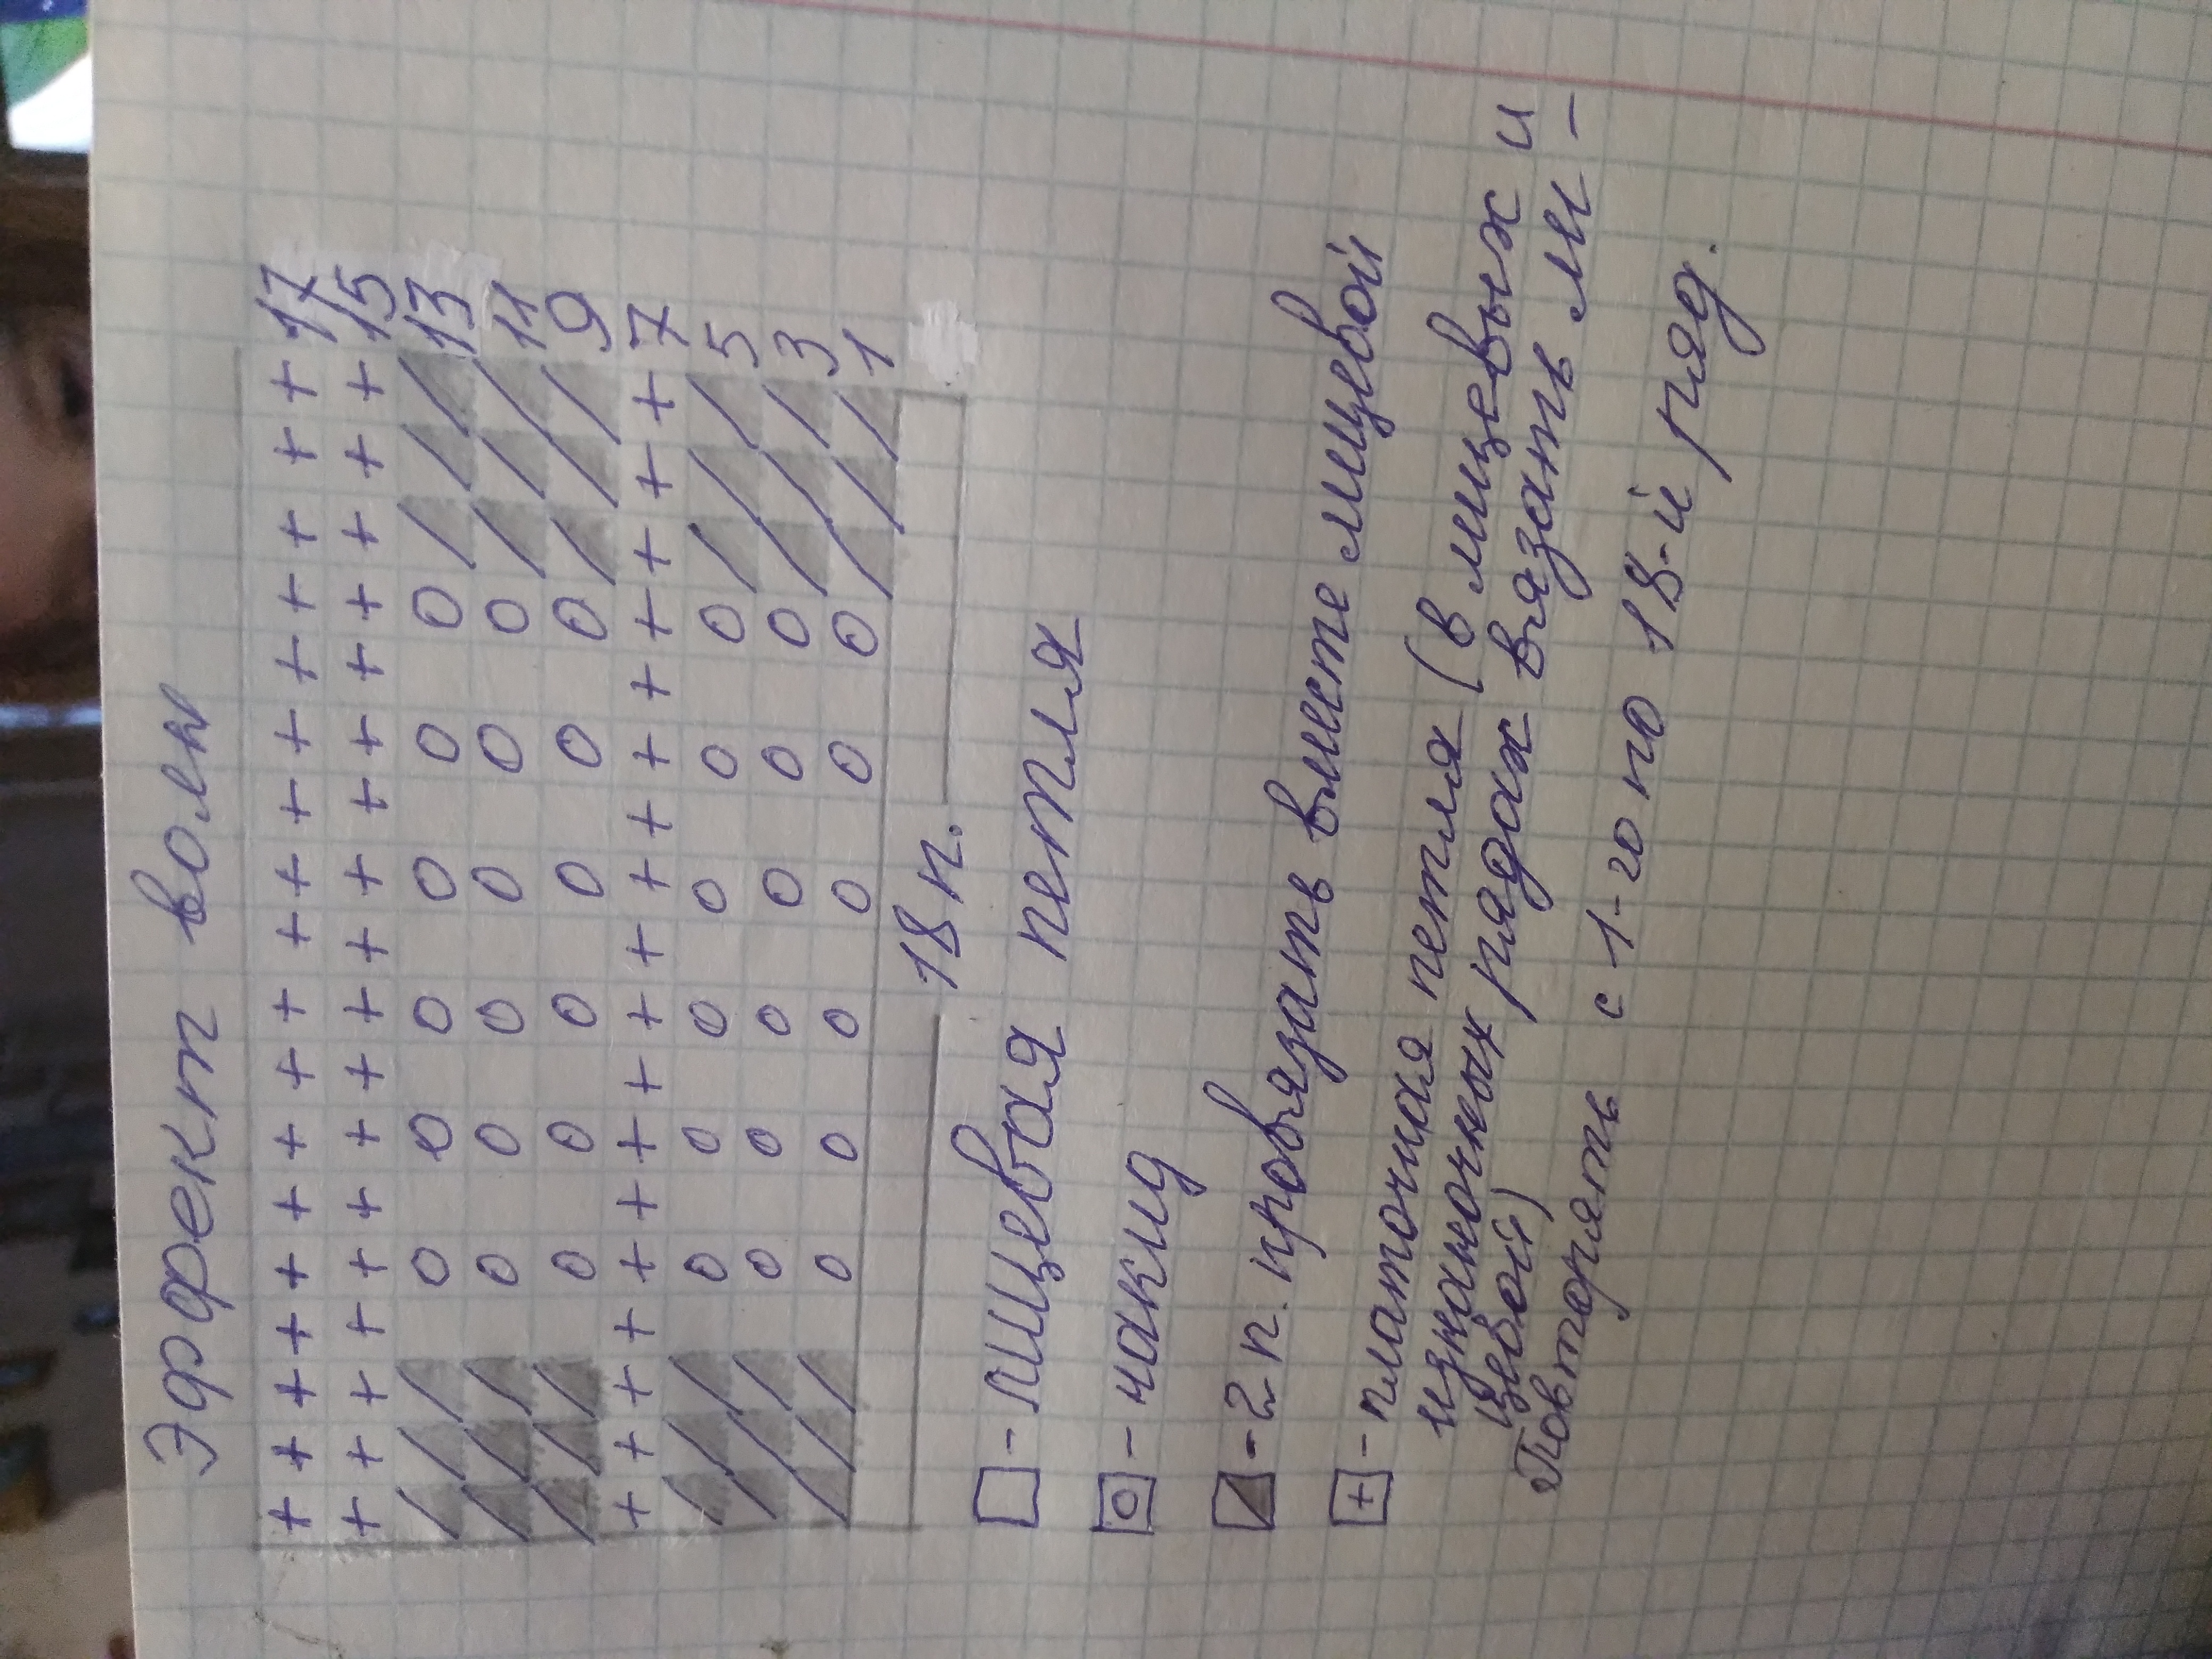 Эффект волн
+ + + + + + + + + + + + + + + + + + 17
+ + + + + + + + + + + + + + + + + + 15
/ / / O O O O O O / / / 13
/ / / O O O O O O / / / 11
/ / / O O O O O O / / / 9
+ + + + + + + + + + + + + + + + + + 7
/ / / O O O O O O / / / 5
/ / / O O O O O O / / / 3
/ / / O O O O O O / / / 1
18 п.
- лицевая петля
O - накид
/ - 2 п. провязать вместе лицевой
+ - платочная петля (в лицевых и
изнаночных рядах вязать ли-
цевой)
Повторять с 1-го по 18-й ряд.